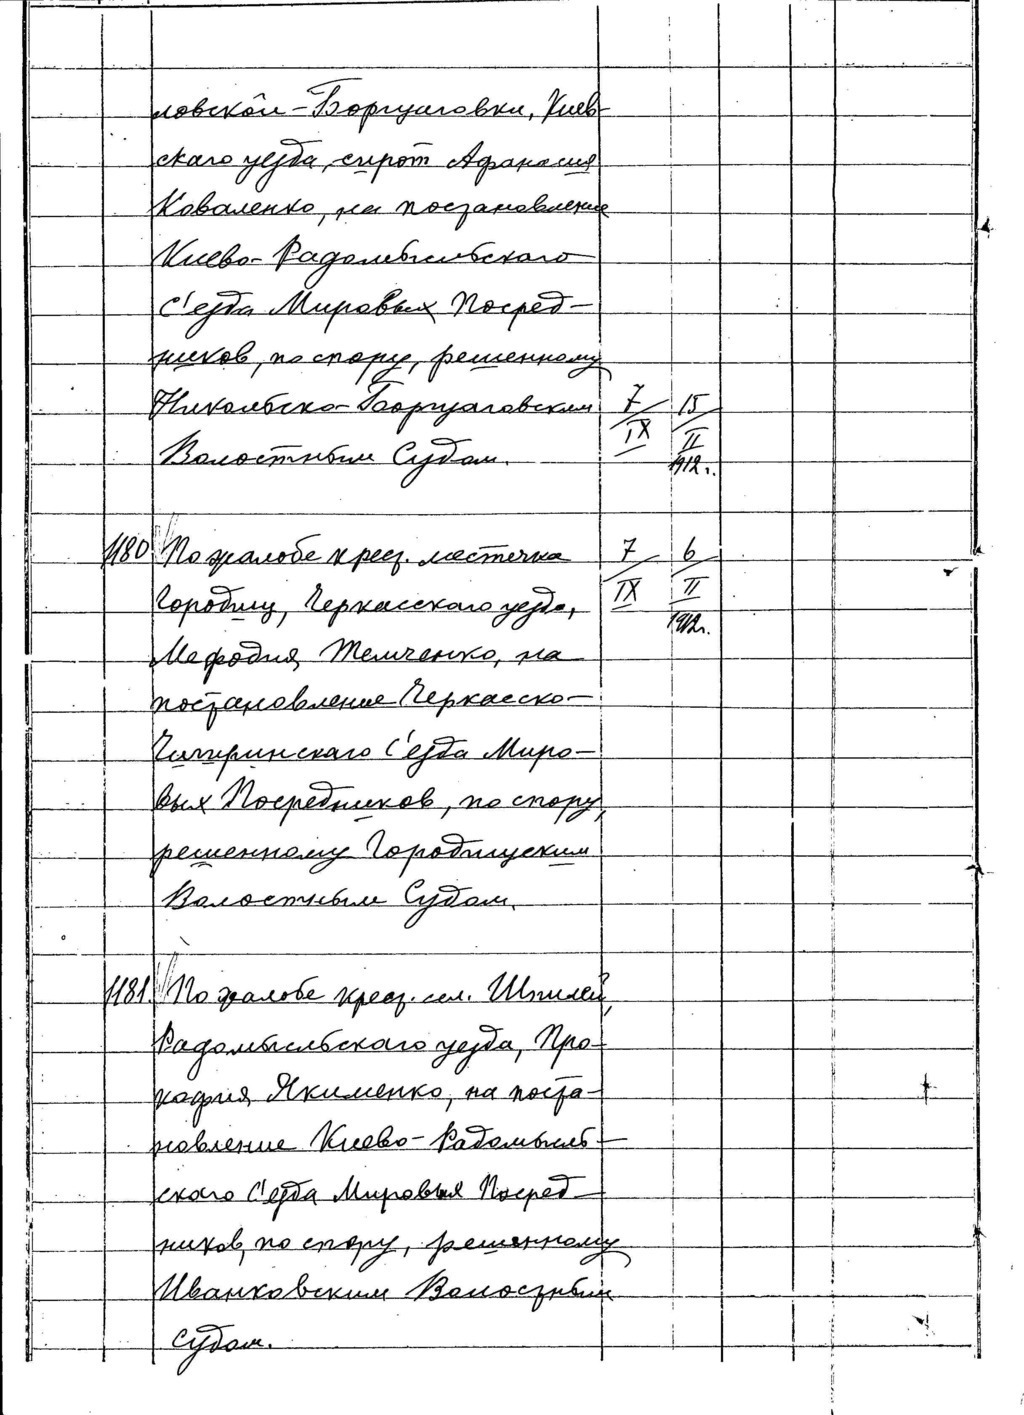 ловской-Борщаговки, Киев-
скаго уезда, сирот Афанасия
Коваленко, на постановление
Киево-Радомысльскаго
С'езда Мировых Посред-
ников, по спору, решенному
Никольско-Борщаговским 7/IX 15/II
Волостным Судом. 1912 г.
1180 По жалобе крест. местечка 7 6
Городищ, Черкасскаго уезда, IX II
1912г.
Мефодия Темченко, на
постановление Черкасско-
Чигиринскаго С'езда Миро-
вых Посредников, по спору,
решенному Городищеским
Волостным Судом.
1181. По жалобе крест. сел. Шпилей,
Радомысльскаго уезда, Про-
кофия Якименко, на поста-
новление Киево-Радомысль-
скаго С'езда Мировых Посред-
ников, по спору, решенному
Иванковским Волостным
Судом.